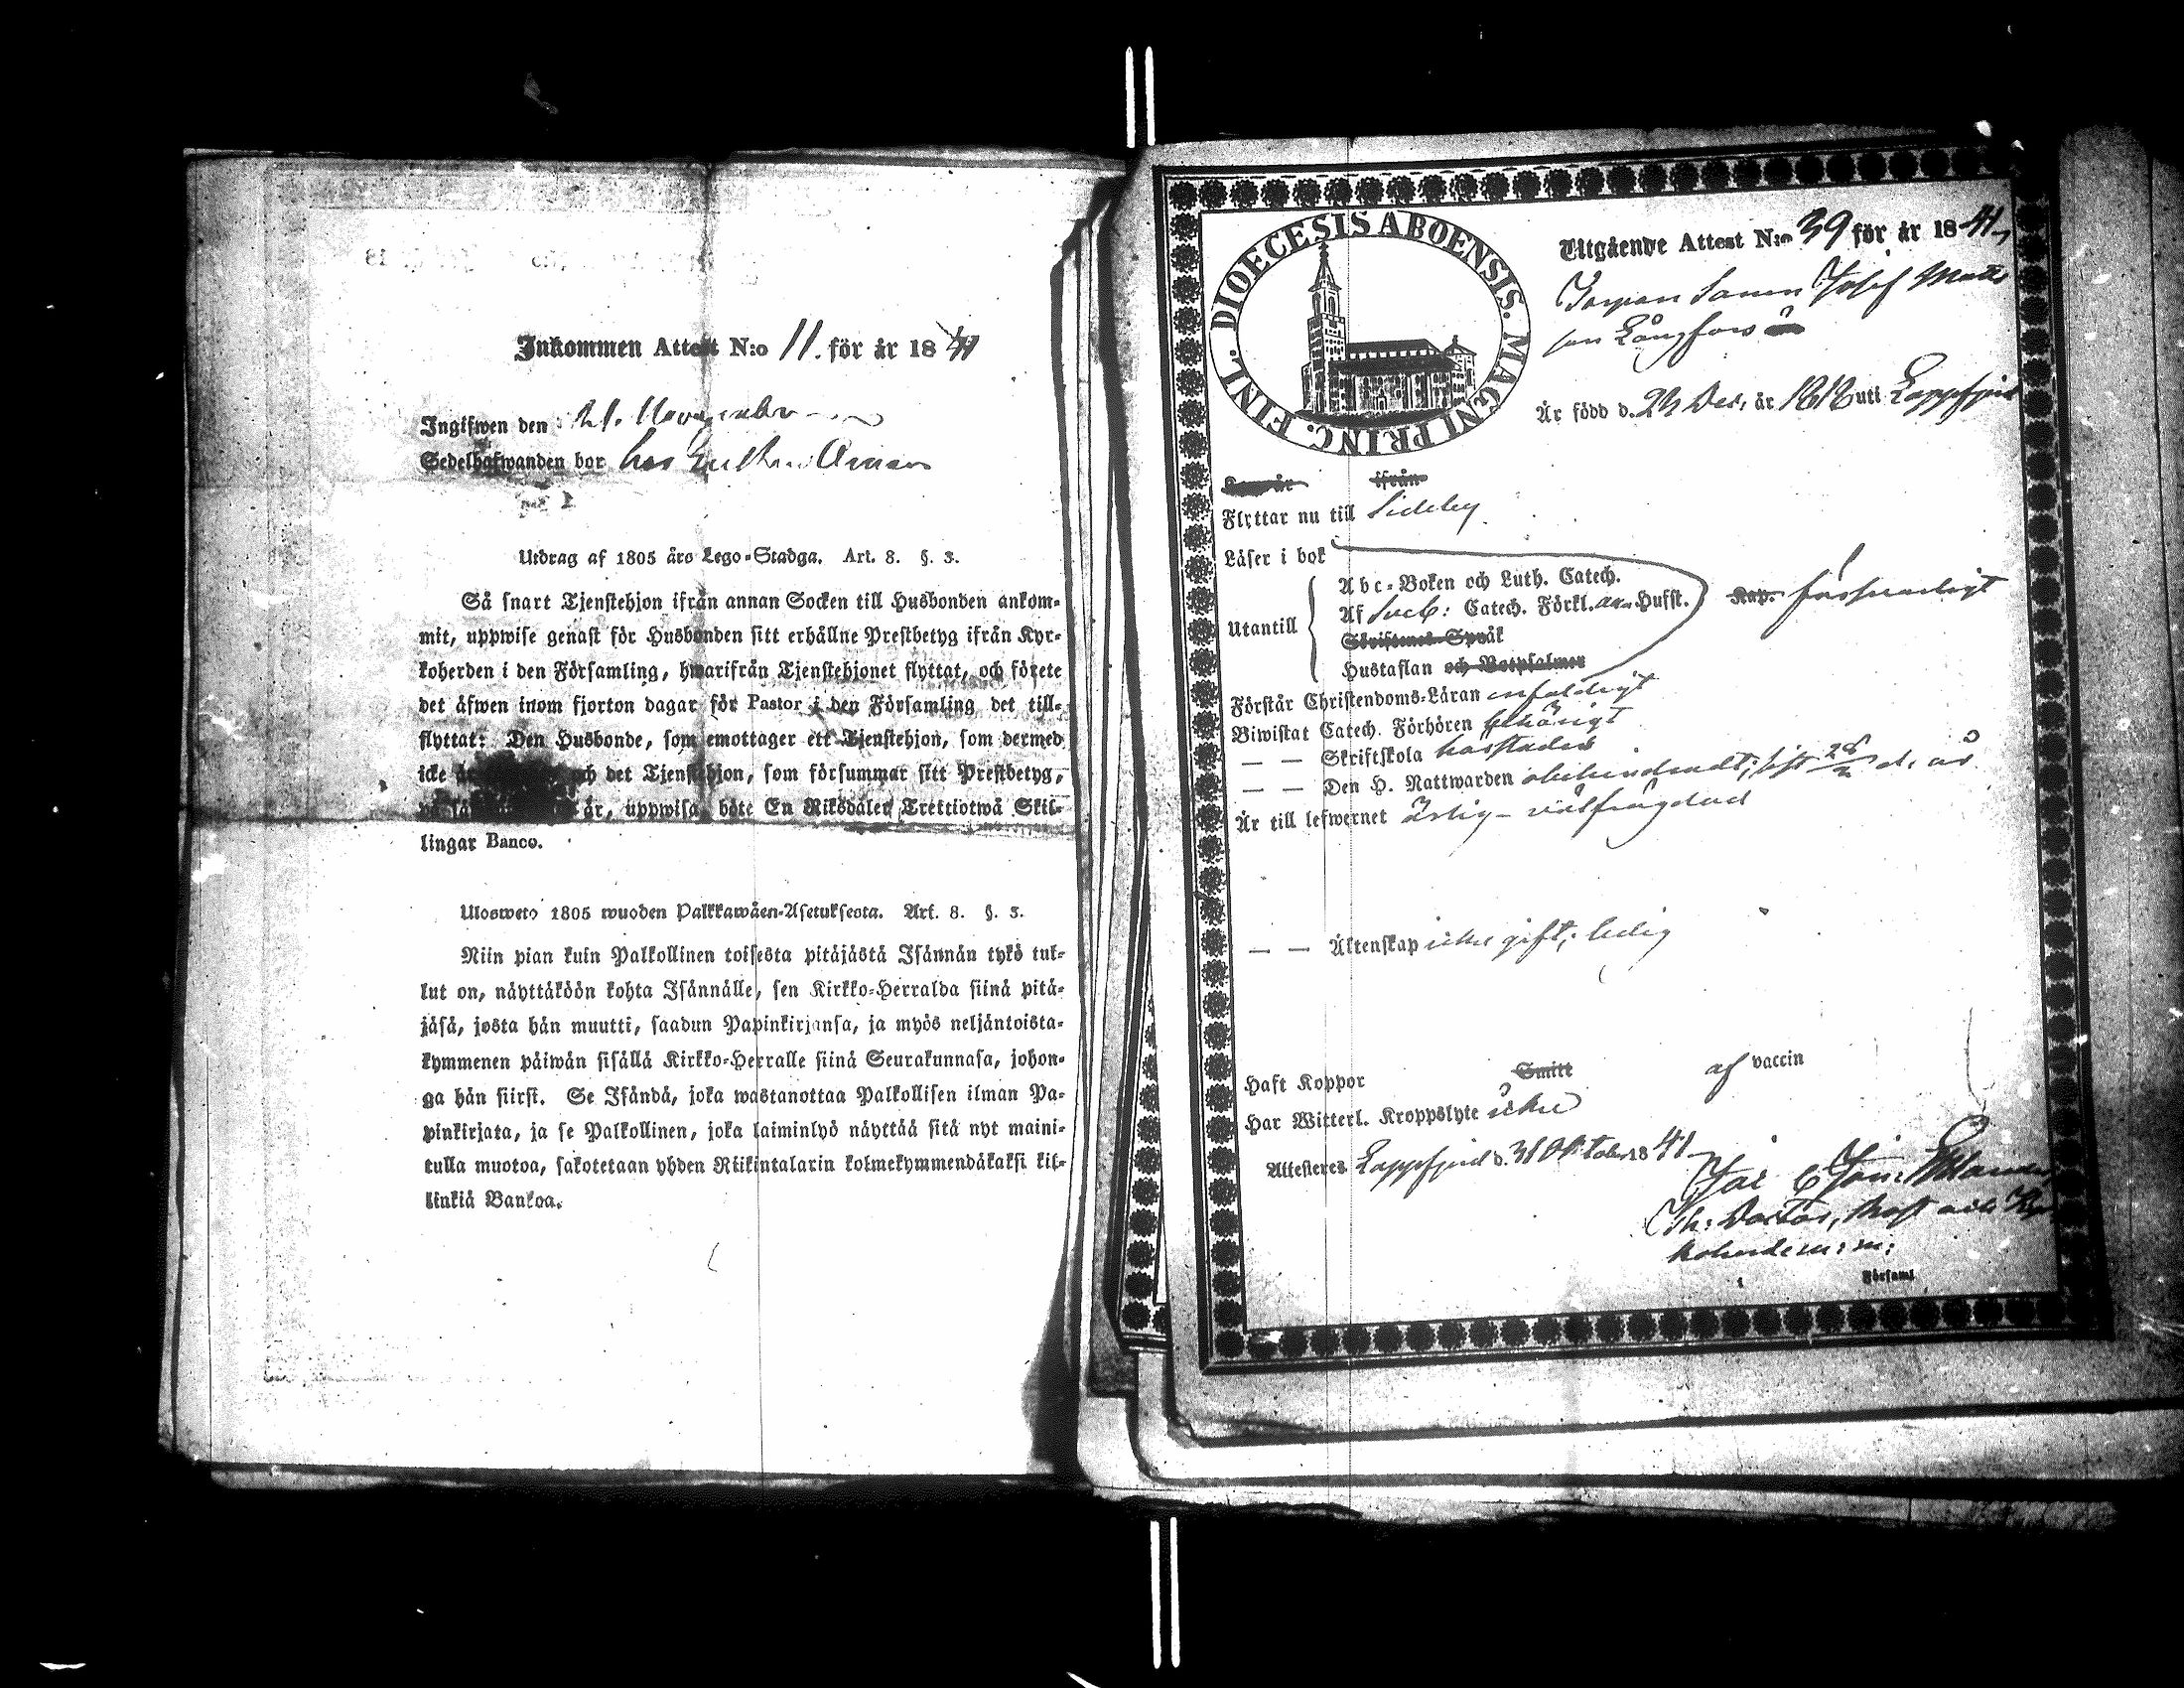 Inkommen Attest N:o 11. för år 1841
Ingifwen den 21. November
Sedelhafwanden bor hos
Utdrag af 1805 års Lego-Stadga. Art. 8. §. 3.
Så snart Tjenstehjon ifrån annan Socken till Husbonden ankom-
mit, uppwise genast för Husbonden sitt erhållne Prestbetyg ifrån Kyr-
koherden i den Församling, hwarifrån Tjenstehjonet flyttat, och förete
det äfwen inom fjorton dagar för Pastor i den Församling det till-
flyttat: Den Husbonde, som emottager ett Tjenstehjon, som dermed
icke och det Tjenstehjon, som försummar sitt Prestbetyg,
år, uppwisa, böte En Riksdaler Trettiotwå Skil-
lingar Banco.
Ulosweto 1805 wuoden Palkkawäen-Asetuksesta. Art. 8. §. 3.
Niin pian kuin Palkollinen toisesta pitäjästä Isännän tykö tul-
lut on, näyttäköön kohta Isännälle, sen Kirkko-Herralda siinä pitä-
jäsä, josta hän muutti, saadun Papinkirjansa, ja myös neljäntoista-
kymmenen päiwän sisällä Kirkko-Herralle siinä Seurakunnasa, johon-
ga hän siirsi. Se Isändä, joka wastanottaa Palkollisen ilman Pa-
pinkirjata, ja se Palkollinen, joka laiminlyö näyttää sitä nyt maini-
tulla muotoa, sakotetaan yhden Riikintalarin kolmekymmendäkaksi kil-
linkiä Bankoa.
DIOECESIS ABOENSIS. MAGNI PRINC. FINL.
Utgående Attest N:o 39 för år 1841,
Josef Matts
son Långfors
Är född d. 23 Dec. år 1818 uti Lappfjerd
ifrån
Flyttar nu till Sideby
Läser i bok
Utantill
Abc-Boken och Luth. Catech.
Af Sveb: Catech. Förkl. Husst.
Skriftenes Språk
Hustaflan och Botpsalmer
Kap. försvarligt
Förstår Christendoms-Läran enfaldigt
Biwistat Catech. Förhören behörigt
— — Skriftskola
— — Den H. Nattwarden obehindradt, sist d. år
Är till lefwernet ärlig – välfrägdad
— — Äktenskap icke gift, ledig
Haft Koppor Smitt af vaccin
Har Witterl. Kroppslyte icke
Attesteres Lappfjerd d. 31 October 1841
Th: Doctor, Prost och Kyr
koherde m: m:
Församl